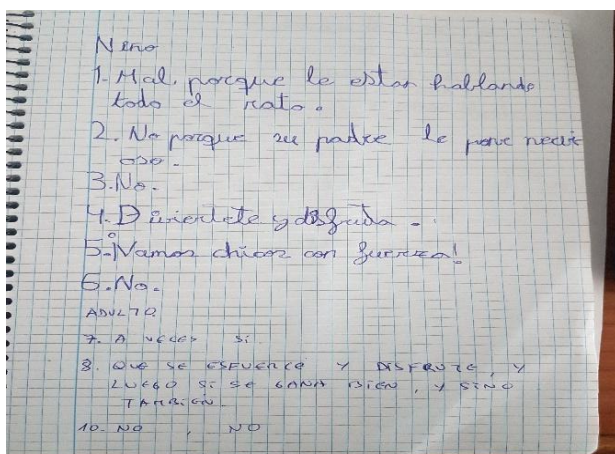 Nino
1. Mal, porque le estan hablando
todo el rato.
2. No porque su padre le pone nervi
oso.
3. No.
4. Diviertete y disfruta.
5. ¡Vamos chicos con fuerza!
6. No.
ADULTO
7. A veces si.
8. QUE SE ESFUERCE Y DISFRUTE, Y
LUEGO SI SE GANA BIEN, Y SINO
TAMBIEN.
10. NO, NO